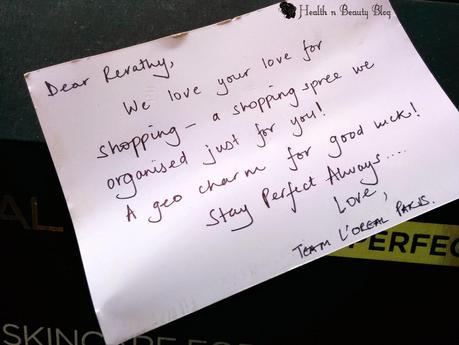 Health n Beauty Blog
Dear Revathy,
We love your love for
shopping – a shopping spree we
organised just for you!
A geo charm for good luck!
Stay Perfect Always....
Love,
TEAM L'OREAL PARIS.
AL
PERFEC
SKINCARE FOR